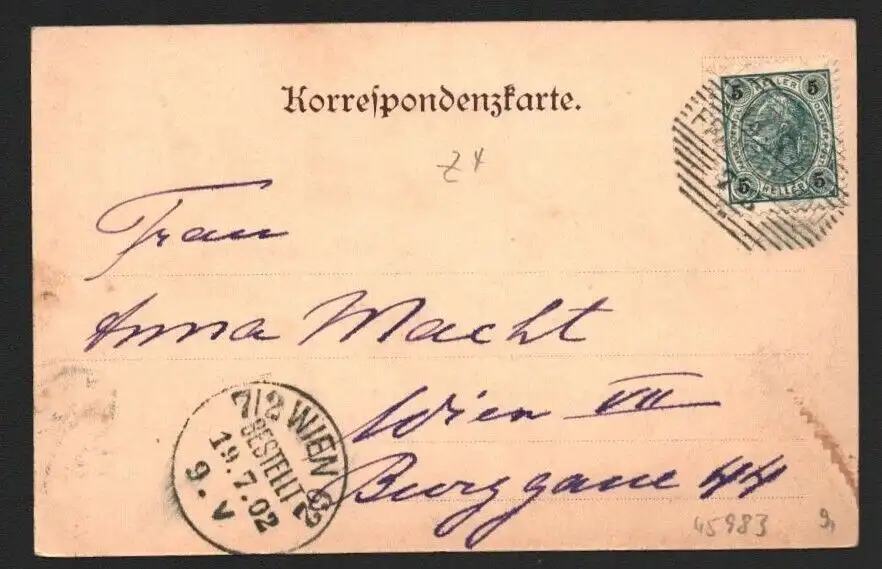 Korrespondenzkarte.
5 5
HELLER
5 5
Z 4
Frau
Anna Macht
Wien VII
Burggasse 44
7/2 WIEN 62
BESTELLT
19.7.02
9.V
45983